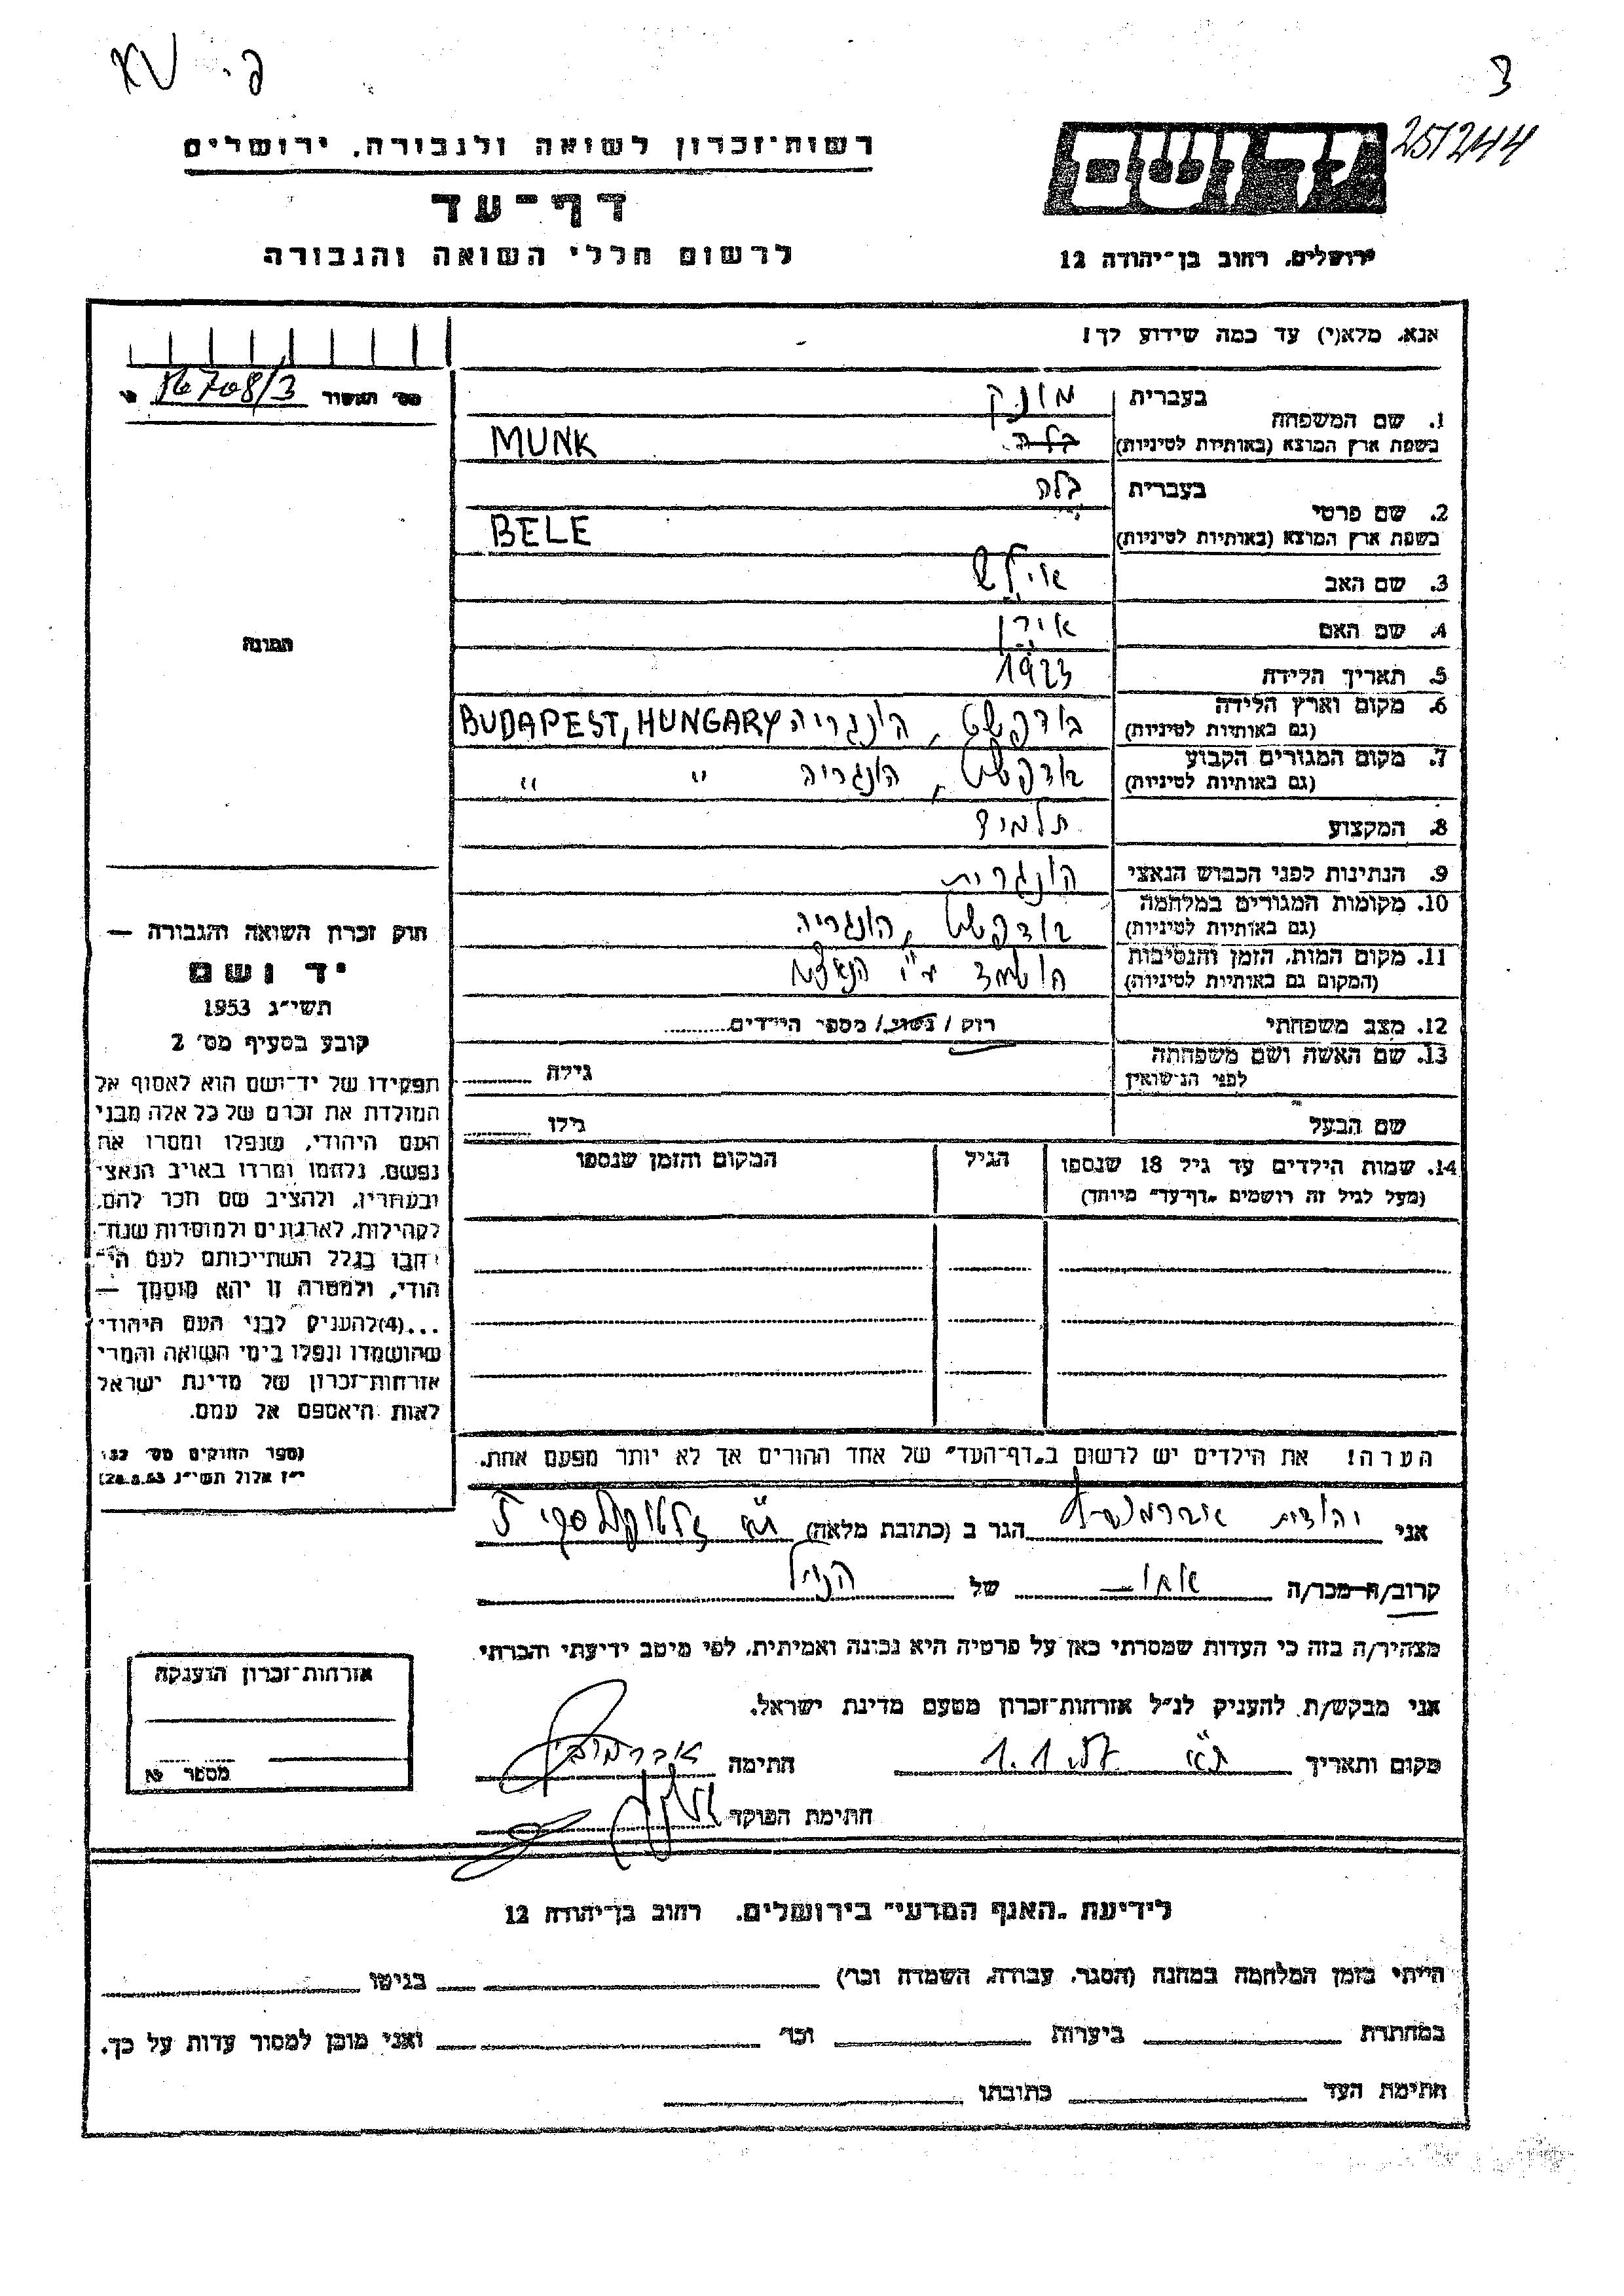 3
25/244
יד ושם
ירושלים, רחוב בן־יהודה 12
רשות־זכרון לשואה ולגבורה, ירושלים
דף־עד
לרשום חללי השואה והגבורה
אנא, מלא(י) עד כמה שידוע לך!
מס׳ האשור 16708/3
1. שם המשפחה
בעברית מונק
בשפת ארץ המוצא (באותיות לטיניות) בלה MUNK
2. שם פרטי
בעברית בלה
בשפת ארץ המוצא (באותיות לטיניות) BELE
3. שם האב
4. שם האם אירן
5. תאריך הלידה 1923
6. מקום וארץ הלידה
(גם באותיות לטיניות) בודפשט, הונגריה BUDAPEST, HUNGARY
7. מקום המגורים הקבוע
(גם באותיות לטיניות) בודפשט, הונגריה " "
8. המקצוע תלמיד
9. הנתינות לפני הכבוש הנאצי הונגרית
10. מקומות המגורים במלחמה
(גם באותיות לטיניות) בודפשט, הונגריה
11. מקום המות, הזמן והנסיבות
(המקום גם באותיות לטיניות) הושמד ע"י הנאצים
12. מצב משפחתי רווק / נשוי / מספר הילדים
13. שם האשה ושם משפחתה
לפני הנישואין גילה
שם הבעל גילו
14. שמות הילדים עד גיל 18 שנספו הגיל המקום והזמן שנספו
(מעל לגיל זה רושמים „דף־עד״ מיוחד)
הערה! את הילדים יש לרשום ב„דף־העד״ של אחד ההורים אך לא יותר מפעם אחת.
התמונה
חוק זכרון השואה והגבורה —
יד ושם
תשי״ג 1953
קובע בסעיף מס׳ 2
תפקידו של יד־ושם הוא לאסוף אל
המולדת את זכרם של כל אלה מבני
העם היהודי, שנפלו ומסרו את
נפשם, נלחמו ומרדו באויב הנאצי
ובעוזריו, ולהציב שם וזכר להם,
לקהילות, לארגונים ולמוסדות שנח־
רבו בגלל השתייכותם לעם הי־
הודי, ולמטרה זו יהא מוסמך —
...(4)להעניק לבני העם היהודי
שהושמדו ונפלו בימי השואה והמרי
אזרחות־זכרון של מדינת ישראל
לאות היאספם אל עמם.
(ספר החוקים מס׳ 132
י״ז אלול תשי״ג 28.8.53)
אני יהודית הגר ב (כתובת מלאה) ת"א
קרוב/ה מכר/ה אחות של הנ"ל
מצהיר/ה בזה כי העדות שמסרתי כאן על פרטיה היא נכונה ואמיתית, לפי מיטב ידיעתי והכרתי
אני מבקש/ת להעניק לנ״ל אזרחות־זכרון מטעם מדינת ישראל.
מקום ותאריך ת"א 1.1 חתימה
חתימת הפוקד
אזרחות־זכרון הוענקה
מספר
לידיעת „האגף המדעי״ בירושלים, רחוב בן־יהודה 12
הייתי בזמן המלחמה במחנה (הסגר, עבודה, השמדה וכו׳) בגיטו
במחתרת ביערות וכו׳ ואני מוכן למסור עדות על כך.
חתימת העד כתובתו